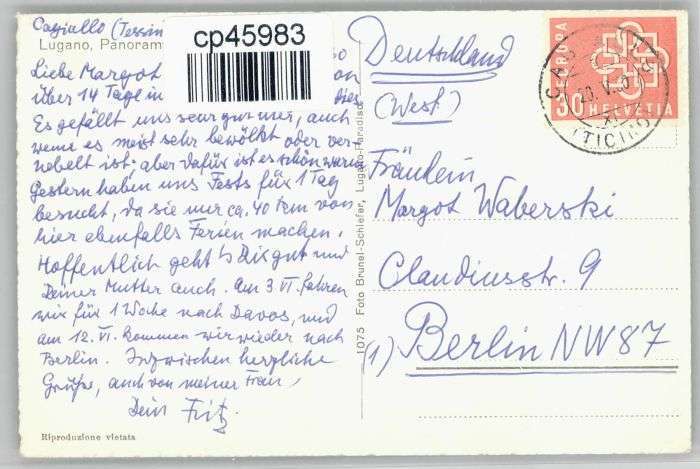 (Tessin
Lugano, Panoram
cp45983
Liebe Margot
über 14 Tage in
Es gefällt uns sehr gut hier, auch
wenn es meist sehr bewölkt oder ver-
nebelt ist; aber dafür ist es schön warm
Gestern haben uns Fests für 1 Tag
besucht, da sie nur ca. 40 km von
hier ebenfalls Ferien machen.
Hoffentlich geht's Dir gut und
Deiner Mutter auch. Am 3 VI. fahren
wir für 1 Woche nach Davos, und
am 12. VI. kommen wir wieder nach
Berlin. Inzwischen herzliche
Grüße, auch von meiner Frau,
Dein Fritz.
Riproduzione vietata
1075 Foto Brunel-Schiefer, Lugano-Paradiso
Deutschland
(West)
Fräulein
Margot Waberski
Claudiusstr. 9
(1) Berlin NW87
EUROPA
30 HELVETIA
(TICINO)